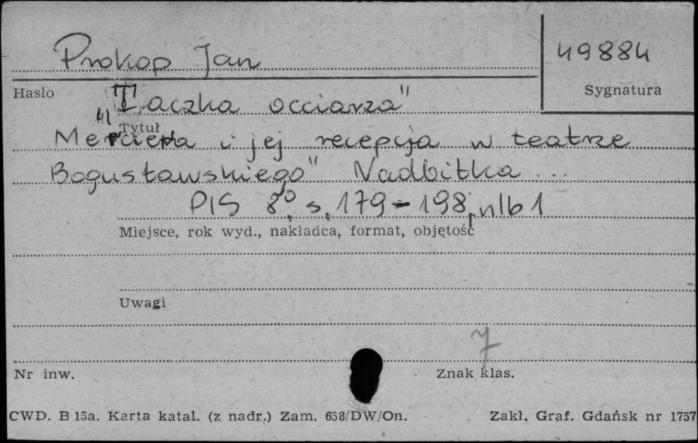 Prokop Jan
49884
Hasło
Sygnatura
"Taczka occiarza"
Tytuł
Merciera i jej recepcja w teatrze
Bogusławskiego" Nadbitka ...
PIS 8°, s. 179-198, nlb 1
Miejsce, rok wyd., nakładca, format, objętość
Uwagi
7
Nr inw.
Znak klas.
CWD. B 15a. Karta katal. (z nadr.) Zam. 658/DW/On.
Zakł. Graf. Gdańsk nr 1757